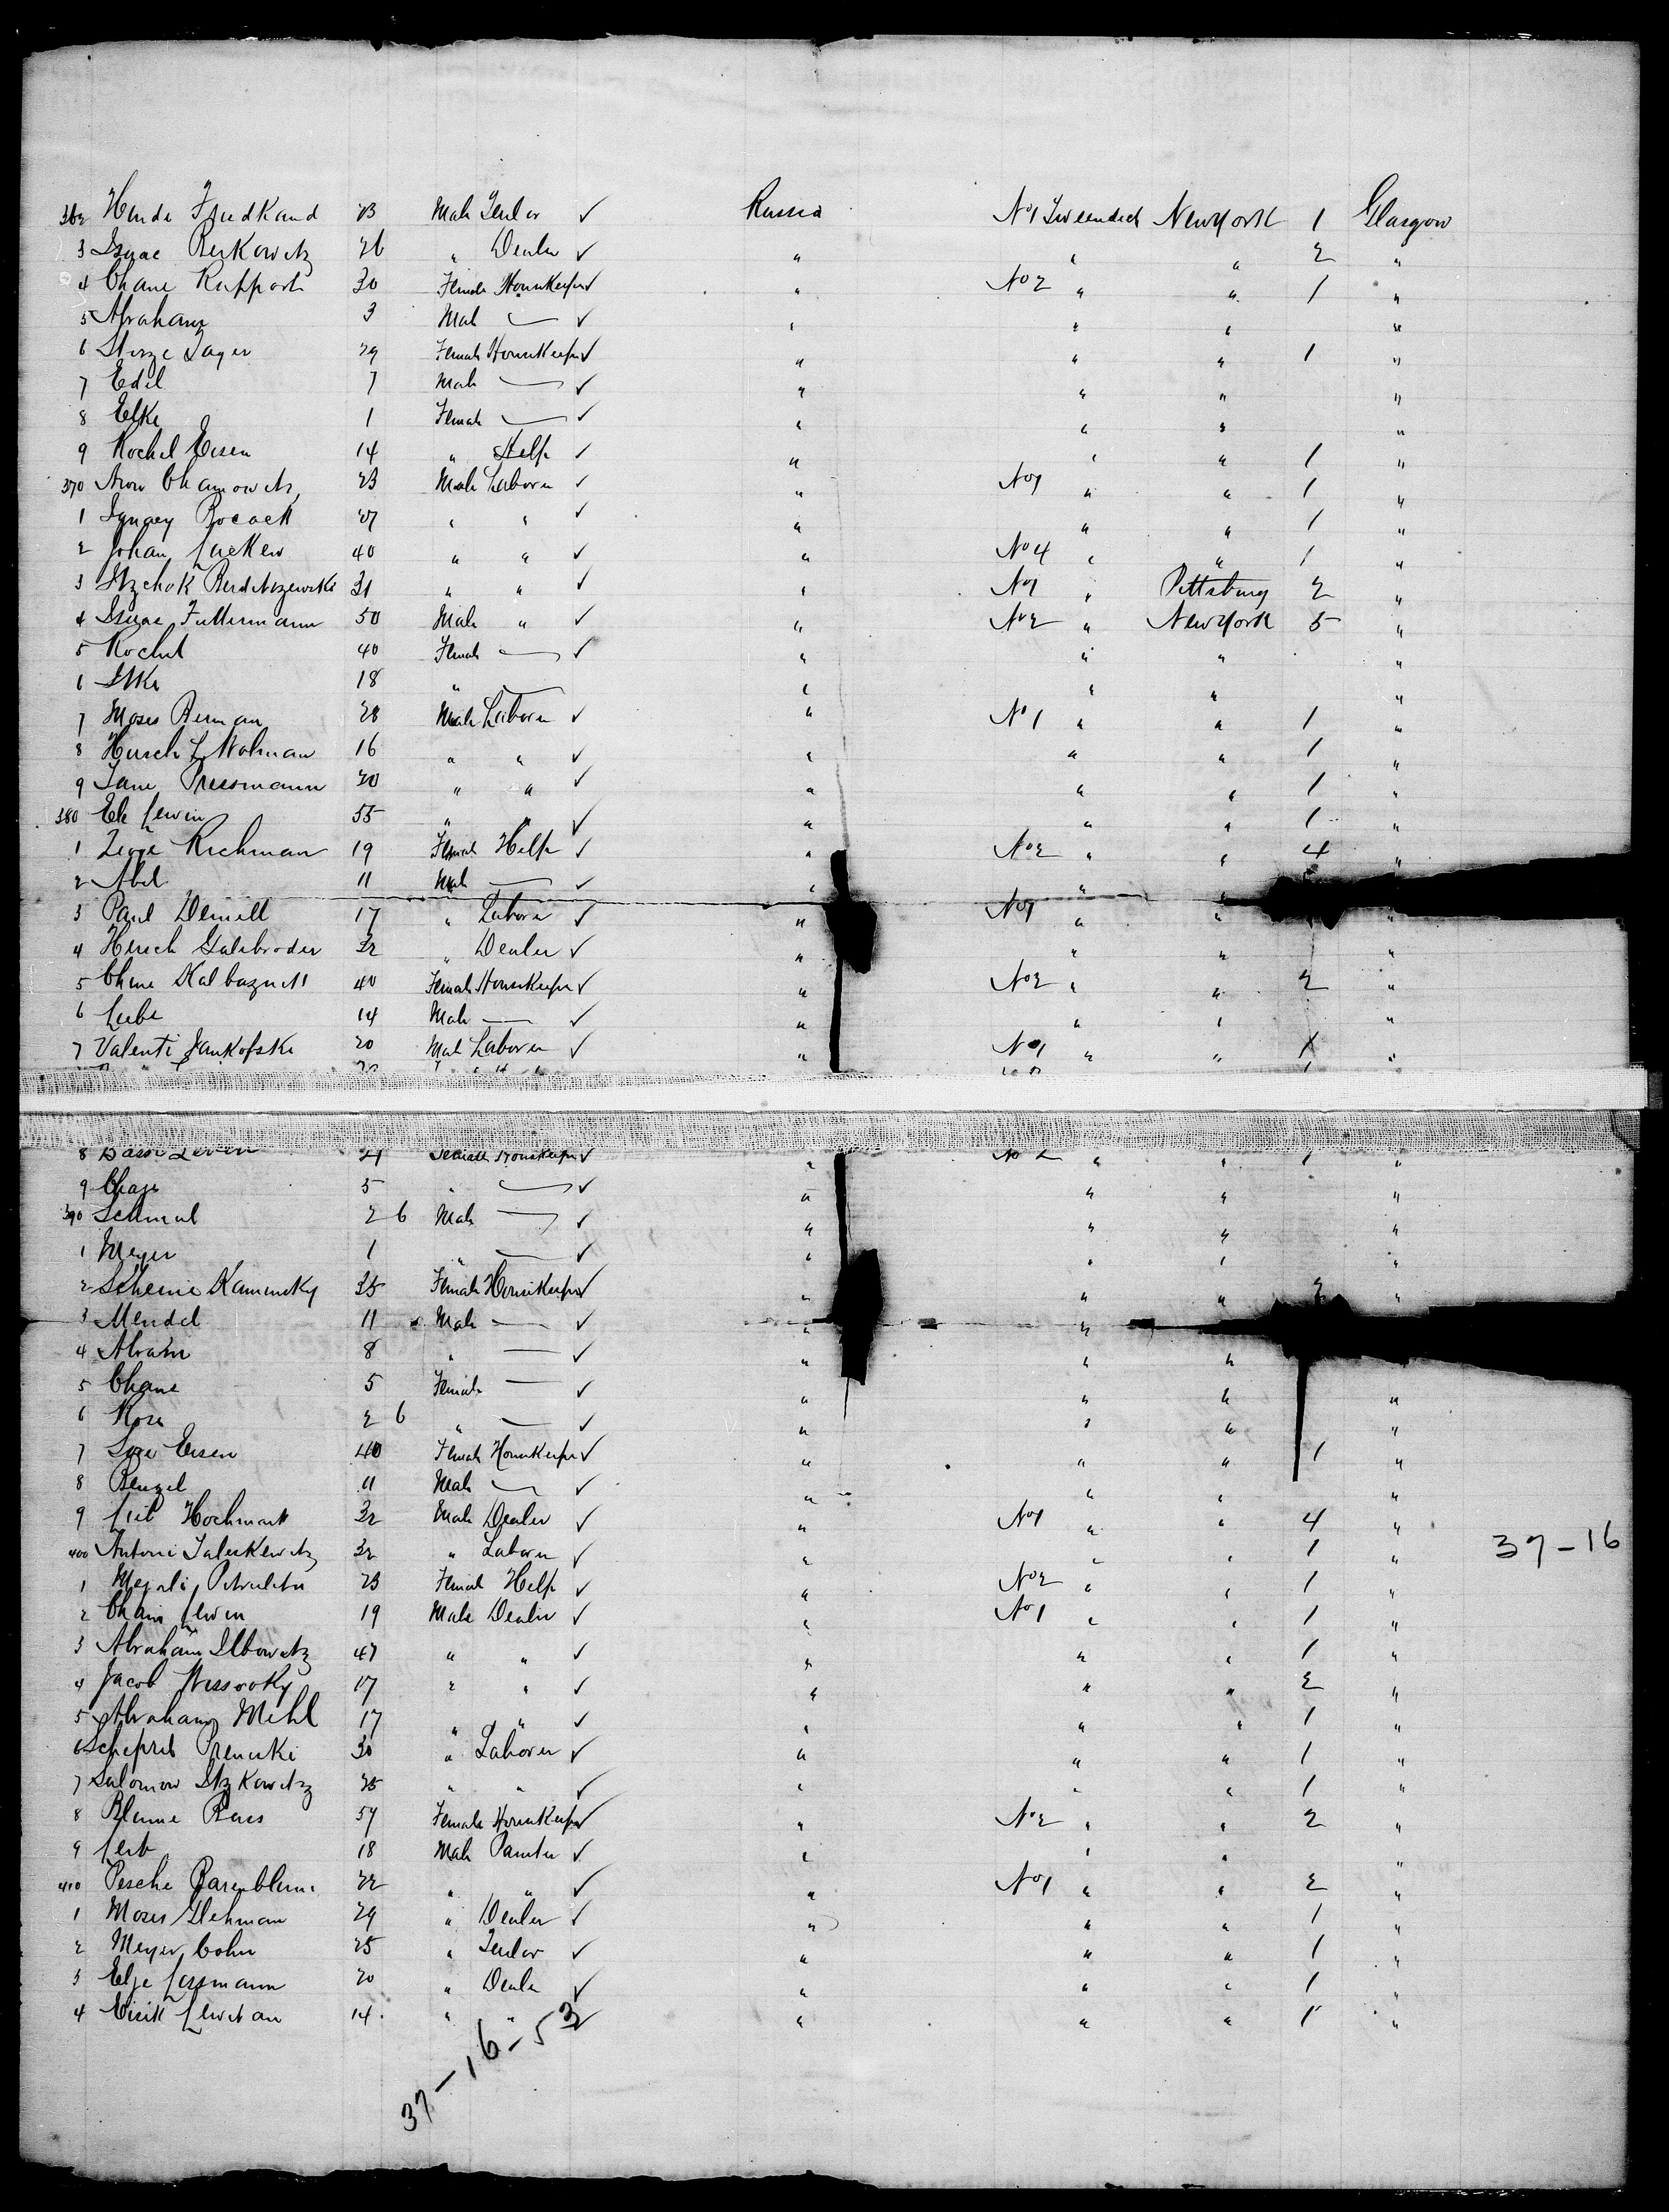 362 Hinde Friedkand 23 Male Tailor ✓ Russia No 1 Tweendeck New York 1 Glasgow
3 Isaac Berkowitz 26 " Dealer ✓ " " " 2 "
4 Chane Rappart 30 Female Housekeeper ✓ " No 2 " " 1 "
5 Abraham 3 Male — ✓ " " " "
6 Jager 29 Female Housekeeper ✓ " " " 1 "
7 Edil 7 Male — ✓ " " " "
8 Elke 1 Female — ✓ " " " "
9 Rochel Eisen 14 " Help ✓ " " " 1 "
370 Aron Chamowitz 23 Male Laborer ✓ " No 1 " " 1 "
1 Ignacy Bocack 27 " " ✓ " " " 1 "
2 Johan Luckew 40 " " ✓ " No 4 " " 1 "
3 Itzchok Berditszewski 31 " " ✓ " No 1 " Pittsburg 2 "
4 Isaac Futtermann 50 Male " ✓ " No 2 " New York 5 "
5 Rochel 40 Female — ✓ " " " "
6 Itke 18 " — " " " "
7 Moses Berman 28 Male Laborer ✓ " No 1 " " 1 "
8 Hirsch L Wolman 16 " " ✓ " " " 1 "
9 Jane Pressmann 20 " " ✓ " " " 1 "
380 Eli Lewin 35 " " ✓ " " " 1 "
1 Richman 19 Female Help ✓ " No 2 " " 4 "
2 Abel 11 Male — ✓ " "
3 Paul Demell 17 " Laborer ✓ " No 1 " " "
4 Hersch Galebroder 32 " Dealer ✓ " " " "
5 Chane 40 Female Housekeeper ✓ " No 2 " " 2 "
6 Lube 14 Male — ✓ " " " "
7 Valenti Jankofski 20 Male Laborer ✓ " No 1 " " 1 "
8 Female Housekeeper ✓ " No 2 " " 1 "
9 Chaje 5 " — ✓ " " " "
390 Schmul 2 6 Male — ✓ " " " "
1 Meyer 1 " — ✓ " " " "
2 Scheine Kaminsky 35 Female Housekeeper ✓ " " " 2 "
3 Mendel 11 Male — ✓ " "
4 Abram 8 " — ✓ " " " "
5 Chane 5 Female — ✓ " " " "
6 Rosa 2 6 " — ✓ " " " "
7 Eisen 40 Female Housekeeper ✓ " " " 1 "
8 Benzel 11 Male — ✓ " " " "
9 Leib Hochmark 32 Male Dealer ✓ " No 1 " " 4 "
400 Antoni Jaleskewitz 32 " Laborer ✓ " " " 1 " 37-16
1 23 Female Help ✓ " No 2 " " 1 "
2 Chaim Lewin 19 Male Dealer ✓ " No 1 " " 1 "
3 Abraham Ilbowitz 47 " " ✓ " " " 1 "
4 Jacob 17 " " ✓ " " " 2 "
5 Abraham Mehl 17 " " ✓ " " " 1 "
6 30 " Laborer ✓ " " " 1 "
7 Salomon Itzkowitz 25 " " ✓ " " " 1 "
8 Blume Bass 54 Female Housekeeper ✓ " No 2 " " 2 "
9 Leib 18 Male Painter ✓ " " " "
410 Pesche Barenblum 22 " " ✓ " No 1 " " 2 "
1 Moses Gehman 29 " Dealer ✓ " " " 1 "
2 Meyer Cohn 25 " Tailor ✓ " " " 1 "
3 Elje Lessmann 20 " Dealer ✓ " " " 1 "
4 Eisik Lewitan 14 " " ✓ " " " 1 "
37-16-53